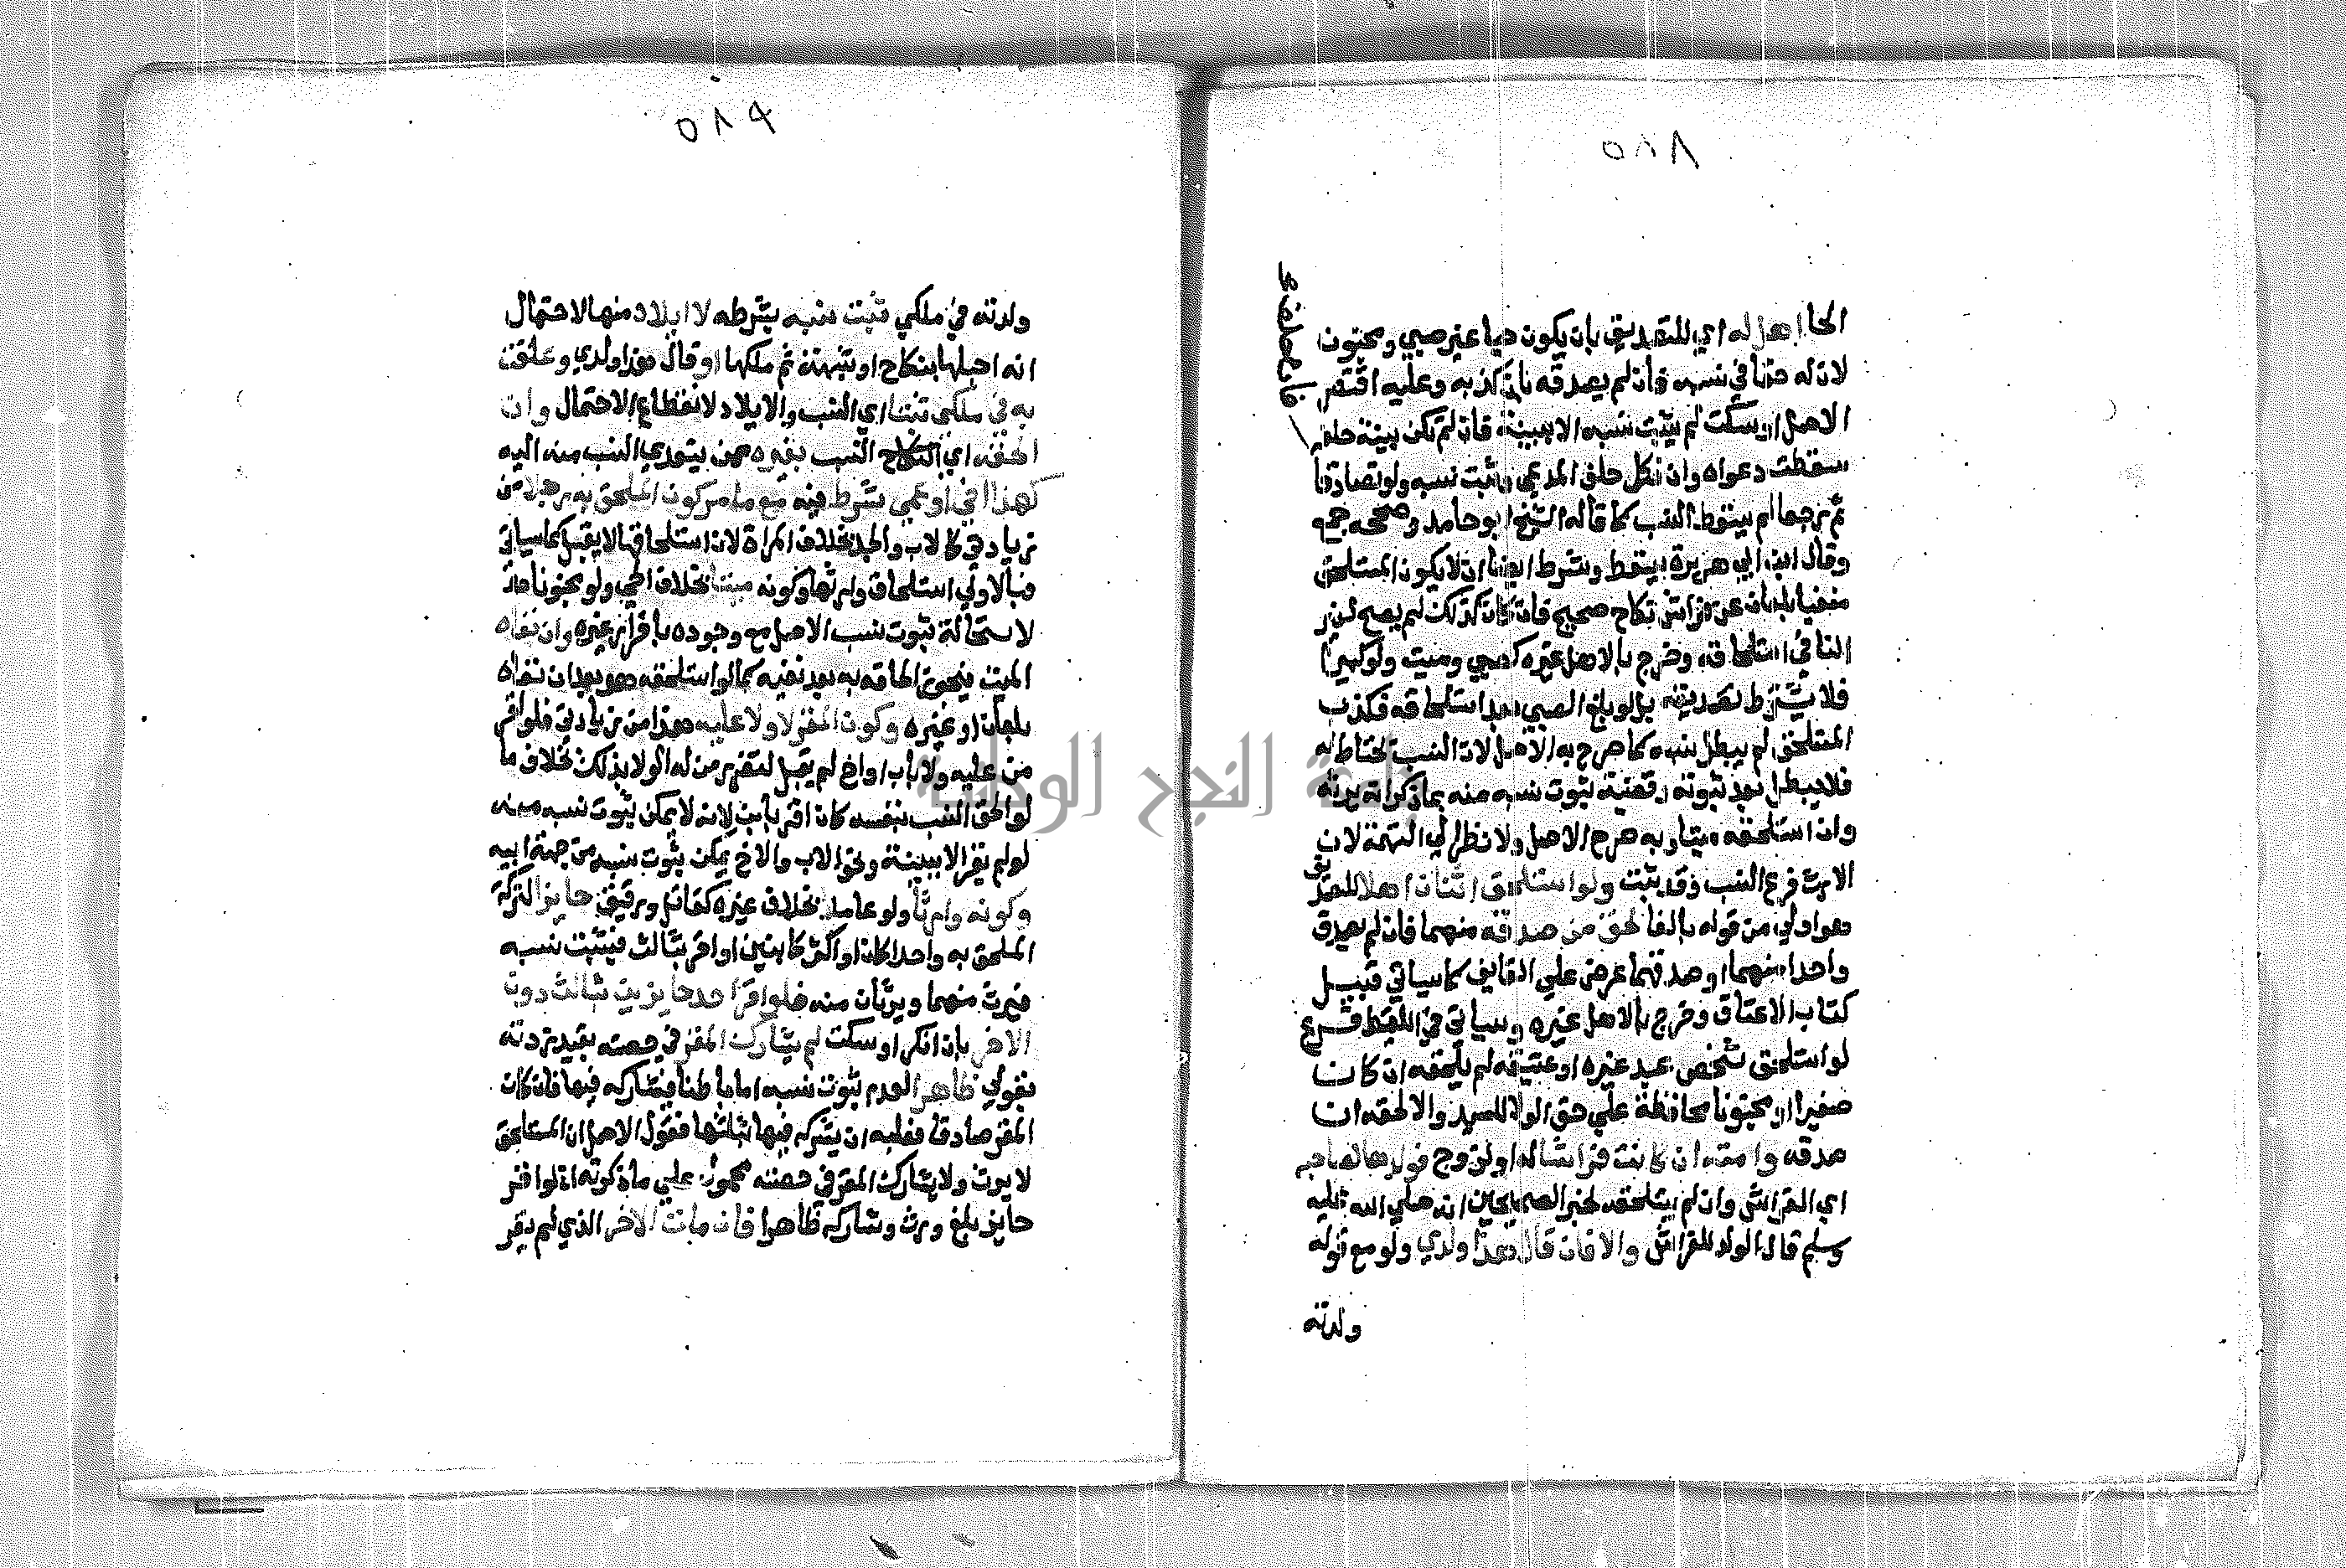 ٥٨٨
الحا اهل له اي للتصديق بان يكون حيا غير صبي ومجنون
لان له حقا في نسبه فان لم يصدقه بان كذبه وعليه اقتصر
الاصل او سكت لم يثبت نسبه الا ببينة فان لم تكن بينة حلفه
فان حلف
سقطت دعواه وان نكل حلف المدعي وثبت نسبه ولو تصادقا
ثم رجعا لم يسقط النسب كما قاله الشيخ ابو حامد وصححه جمع
وقال ابن ابي هريرة يسقط ويشترط ايضا ان لا يكون المستلحق
منفيا بلعان عن فراش نكاح صحيح فان كان كذلك لم يصح لغير
النافي استلحاقه وخرج بالاهل غيره كصبي وميت ولو كبيرا
فلا يشترط تصديقه بل لو بلغ الصبي بعد استلحاقه فكذب
المستلحق لم يبطل نسبه كما صرح به الاصل لان النسب يحتاط له
فلا يبطل بعد ثبوته وقضية ثبوت نسبه منه بما ذكر انه يرثه
وان استلحقه ميتا وبه صرح الاصل ولا نظر الي التهمة لان
الارث فرع النسب وقد يثبت ولو استلحق اثنان اهلا للتصديق
هو اولي من قوله بالغا لحق من صدقه منهما فان لم يصدق
واحدا منهما او صدقهما عرض علي القايف كما سياتي قبيل
كتاب الاعتاق وخرج بالاهل غيره وسياتي في اللقيط فرع
لو استلحق شخص عبد غيره او عتيقه لم يلحقه ان كان
صغيرا او مجنونا محافظة علي حق الولا للسيد والا لحقه ان
صدقه وامته ان كانت فراشا له او لزوج فولدها لصاحبه
اي الفراش وان لم يستلحقه لخبر الصحيحين انه صلي الله عليه
وسلم قال الولد للفراش والا فان قال هذا ولدي ولو مع قوله
ولدته
٥٨٩
ولدته في ملكي ثبت نسبه بشرطه لا ايلاد منها لاحتمال
انه احبلها بنكاح او بشبهة ثم ملكها او قال هذا ولدي وعلقت
به في ملكي ثبتا اي النسب والايلاد لانقطاع الاحتمال وان
الحقه اي النسب بغيره ممن يتعدي النسب منه اليه
كهذا اخي او عمي شرط فيه مع ما مر كون الملحق به رجلا من
زيادتي كالاب والجد بخلاف المراة لان استلحاقها لا يقبل كما سياتي
فبالاولي استلحاق وارثها وكونه ميتا بخلاف الحي ولو مجنونا
لاستحالة ثبوت نسب الاصل مع وجوده باقرار غيره وان نفاه
الميت فيجوز الحاقه به بعد نفيه كما لو استلحقه هو بعد ان نفاه
بلعان او غيره وكون المقر لا ولا عليه هذا من زيادتي فلو اقر
من عليه ولا باب او اخ لم يقبل لتضرر من له الولا بذلك بخلاف ما
لو الحق النسب بنفسه كان اقر بابن لانه لا يمكن ثبوت نسبه منه
لو لم يقر الا ببينة ونحو الاب والاخ يمكن ثبوت نسبه من جهة ابيه
وكونه وارثا ولو عاما بخلاف غيره كقاتل ورقيق حايز التركة
الملحق به واحدا كان او اكثر كابنين او اقر بثالث فيثبت نسبه
فيرث منهما ويرثان منه فلو اقر احد حايزين بثالث دون
الاخر بان انكر او سكت لم يشارك المقر في حصته بقيد زدته
بقولي ظاهرا لعدم ثبوت نسبه اما باطنا فيشاركه فيها فان كان
المقر صادقا فعليه ان يشركه فيها بثلثها فقول الاصل ان المستلحق
لا يرث ولا يشارك المقر في حصته محمول علي ما ذكرته اذ لو اقر
حايز بلغ ورث وشاركه ظاهرا فان مات الاخر الذي لم يقر
جامعة النجاح الوطنية